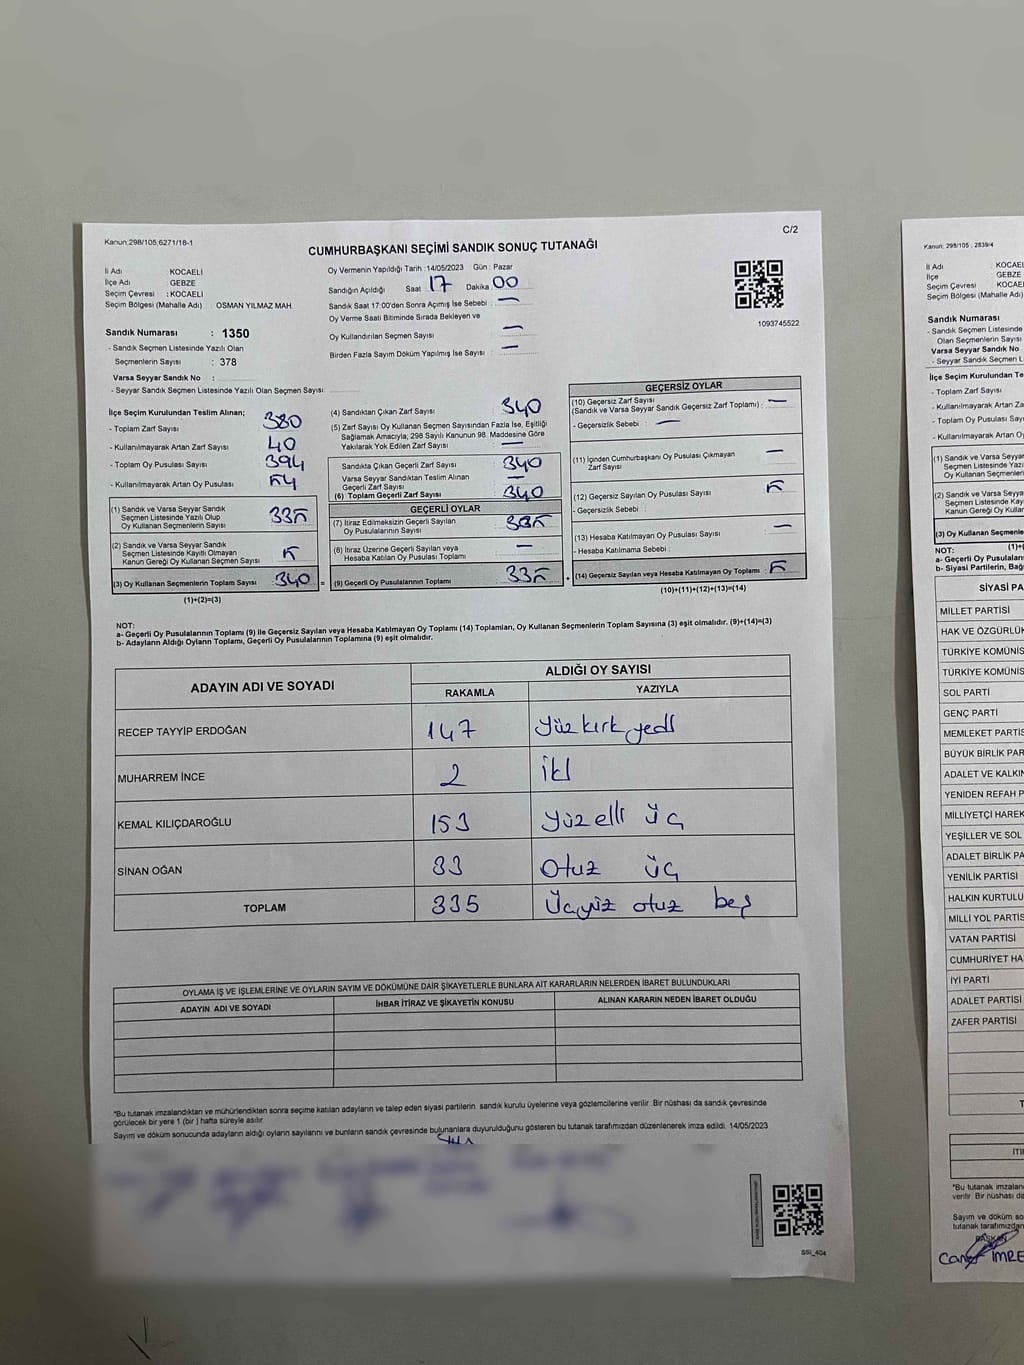 Kanun:298/105,6271/18-1
C/2
CUMHURBAŞKANI SEÇİMİ SANDIK SONUÇ TUTANAĞI
İl Adı KOCAELİ
İlçe Adı GEBZE
Seçim Çevresi : KOCAELİ
Seçim Bölgesi (Mahalle Adı) OSMAN YILMAZ MAH.
Oy Vermenin Yapıldığı Tarih :14/05/2023 Gün : Pazar
Sandığın Açıldığı Saat 17 Dakika 00
Sandık Saat 17:00'den Sonra Açımış İse Sebebi : —
Oy Verme Saati Bitiminde Sırada Bekleyen ve
Oy Kullandırılan Seçmen Sayısı —
Birden Fazla Sayım Döküm Yapılmış İse Sayısı : —
1093745522
Sandık Numarası : 1350
- Sandık Seçmen Listesinde Yazılı Olan
Seçmenlerin Sayısı : 378
Varsa Seyyar Sandık No :
- Seyyar Sandık Seçmen Listesinde Yazılı Olan Seçmen Sayısı:
İlçe Seçim Kurulundan Teslim Alınan;
- Toplam Zarf Sayısı 380
- Kullanılmayarak Artan Zarf Sayısı 40
- Toplam Oy Pusulası Sayısı 394
- Kullanılmayarak Artan Oy Pusulası 54
(1) Sandık ve Varsa Seyyar Sandık
Seçmen Listesinde Yazılı Olup
Oy Kullanan Seçmenlerin Sayısı 335
(2) Sandık ve Varsa Seyyar Sandık
Seçmen Listesinde Kayıtlı Olmayan
Kanun Gereği Oy Kullanan Seçmen Sayısı 5
(3) Oy Kullanan Seçmenlerin Toplam Sayısı 340 =
(1)+(2)=(3)
(4) Sandıktan Çıkan Zarf Sayısı 340
(5) Zarf Sayısı Oy Kullanan Seçmen Sayısından Fazla İse, Eşitliği
Sağlamak Amacıyla; 298 Sayılı Kanunun 98. Maddesine Göre
Yakılarak Yok Edilen Zarf Sayısı —
Sandıkta Çıkan Geçerli Zarf Sayısı 340
Varsa Seyyar Sandıktan Teslim Alınan
Geçerli Zarf Sayısı —
(6) Toplam Geçerli Zarf Sayısı 340
GEÇERLİ OYLAR
(7) İtiraz Edilmeksizin Geçerli Sayılan
Oy Pusulalarının Sayısı 335
(8) İtiraz Üzerine Geçerli Sayılan veya
Hesaba Katılan Oy Pusulası Toplamı —
(9) Geçerli Oy Pusulalarının Toplamı 335 +
GEÇERSİZ OYLAR
(10) Geçersiz Zarf Sayısı
(Sandık ve Varsa Seyyar Sandık Geçersiz Zarf Toplamı) : —
- Geçersizlik Sebebi : —
(11) İçinden Cumhurbaşkanı Oy Pusulası Çıkmayan
Zarf Sayısı —
(12) Geçersiz Sayılan Oy Pusulası Sayısı 5
- Geçersizlik Sebebi :
(13) Hesaba Katılmayan Oy Pusulası Sayısı —
- Hesaba Katılmama Sebebi :
(14) Geçersiz Sayılan veya Hesaba Katılmayan Oy Toplamı 5
(10)+(11)+(12)+(13)=(14)
NOT:
a- Geçerli Oy Pusulalarının Toplamı (9) ile Geçersiz Sayılan veya Hesaba Katılmayan Oy Toplamı (14) Toplamları, Oy Kullanan Seçmenlerin Toplam Sayısına (3) eşit olmalıdır. (9)+(14)=(3)
b- Adayların Aldığı Oyların Toplamı, Geçerli Oy Pusulalarının Toplamına (9) eşit olmalıdır.
ADAYIN ADI VE SOYADI ALDIĞI OY SAYISI
RAKAMLA YAZIYLA
RECEP TAYYİP ERDOĞAN 147 Yüz kırk yedi
MUHARREM İNCE 2 iki
KEMAL KILIÇDAROĞLU 153 Yüz elli üç
SİNAN OĞAN 33 Otuz üç
TOPLAM 335 Üçyüz otuz beş
OYLAMA İŞ VE İŞLEMLERİNE VE OYLARIN SAYIM VE DÖKÜMÜNE DAİR ŞİKAYETLERLE BUNLARA AİT KARARLARIN NELERDEN İBARET BULUNDUKLARI
ADAYIN ADI VE SOYADI İHBAR İTİRAZ VE ŞİKAYETİN KONUSU ALINAN KARARIN NEDEN İBARET OLDUĞU
*Bu tutanak imzalandıktan ve mühürlendikten sonra seçime katılan adayların ve talep eden siyasi partilerin sandık kurulu üyelerine veya gözlemcilerine verilir .Bir nüshası da sandık çevresinde
görülecek bir yere 1 (bir ) hafta süreyle asılır.
Sayım ve döküm sonucunda adayların aldığı oyların sayılarını ve bunların sandık çevresinde bulunanlara duyurulduğunu gösteren bu tutanak tarafımızdan düzenlenerek imza edildi. 14/05/2023
SSI_404
Kanun: 298/105 , 2839/4
İl Adı KOCAEL
İlçe GEBZE
Seçim Çevresi KOCAEL
Seçim Bölgesi (Mahalle Adı)
Sandık Numarası
- Sandık Seçmen Listesinde
Olan Seçmenlerin Sayısı
Varsa Seyyar Sandık No
- Seyyar Sandık Seçmen L
İlçe Seçim Kurulundan Te
- Toplam Zarf Sayısı
- Kullanılmayarak Artan Za
- Toplam Oy Pusulası Sayıs
- Kullanılmayarak Artan Oy
(1) Sandık ve Varsa Seyya
Seçmen Listesinde Yazı
Oy Kullanan Seçmenler
(2) Sandık ve Varsa Seyya
Seçmen Listesinde Kay
Kanun Gereği Oy Kullan
(3) Oy Kullanan Seçmenle
NOT: (1)+(
a- Geçerli Oy Pusulaların
b- Siyasi Partilerin, Bağı
SİYASİ PA
MİLLET PARTİSİ
HAK VE ÖZGÜRLÜK
TÜRKİYE KOMÜNİS
TÜRKİYE KOMÜNİS
SOL PARTİ
GENÇ PARTİ
MEMLEKET PARTİS
BÜYÜK BİRLİK PAR
ADALET VE KALKIN
YENİDEN REFAH P
MİLLİYETÇİ HAREK
YEŞİLLER VE SOL
ADALET BİRLİK PA
YENİLİK PARTİSİ
HALKIN KURTULU
MİLLİ YOL PARTİS
VATAN PARTİSİ
CUMHURİYET HA
İYİ PARTİ
ADALET PARTİSİ
ZAFER PARTİSİ
T
İTİ
*Bu tutanak imzalan
verilir. Bir nüshası da
Sayım ve döküm so
tutanak tarafımızdan
BAŞKAN
İMRE